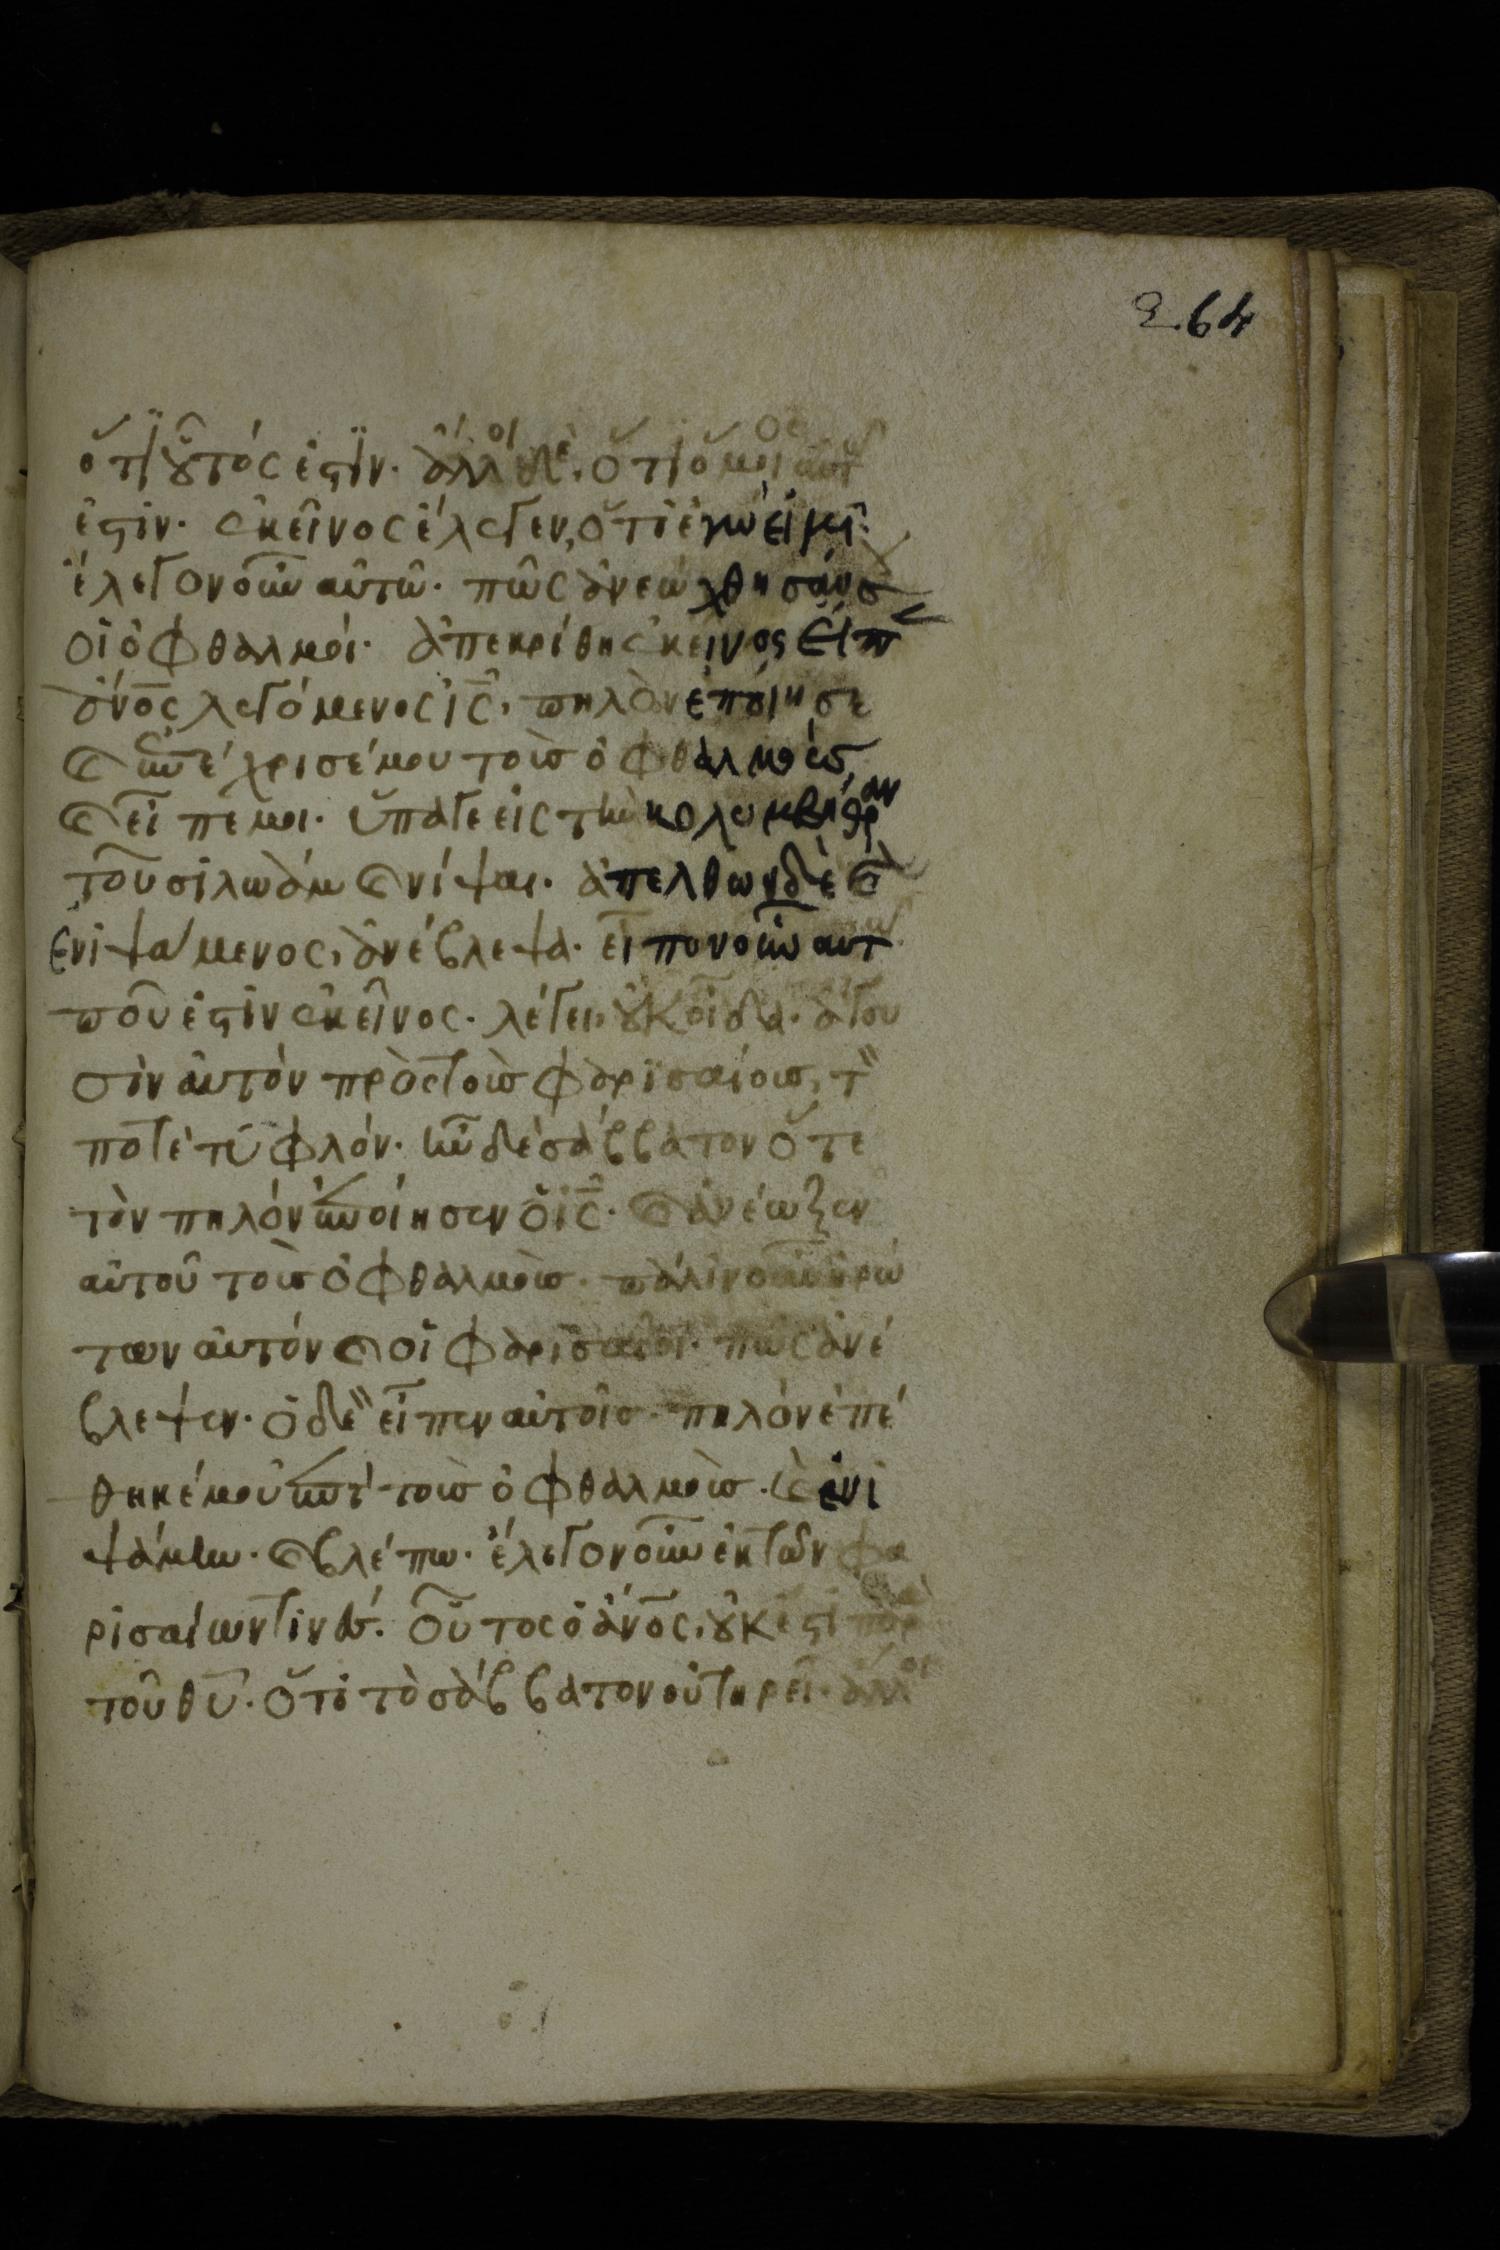 264
ὅτι οὗτός ἐστιν. ἄλλοι δὲ, ὅτι ὅμοιος αὐτῷ
ἐστιν. ἐκεῖνος ἔλεγεν, ὅτι ἐγώ εἰμι.
ἔλεγον οὖν αὐτῷ. πῶς ἀνεώχθησάν σ
οἱ ὀφθαλμοί. ἀπεκρίθη ἐκεῖνος εἶπ
ἄνος λεγόμενος ις, πηλὸν ἐποίησε
καὶ ἐπέχρισέ μου τοὺς ὀφθαλμούς,
καὶ εἶπέ μοι. ὕπαγε εἰς τὴν κολυμβήθραν
τοῦ σιλωὰμ καὶ νίψαι. ἀπελθὼν δὲ καὶ
ἐνιψάμενος, ἀνέβλεψα. εἶπον οὖν αὐτῷ
ποῦ ἐστιν ἐκεῖνος. λέγει, οὐκ οἶδα. ἄγου
σιν αὐτὸν πρὸς τοὺς φαρισαίους, τ
ποτὲ τυφλόν. ἦν δὲ σάββατον ὅτε
τὸν πηλὸν ἐποίησεν ὁ ις. καὶ ἀνέωξεν
αὐτοῦ τοὺς ὀφθαλμούς. πάλιν οὖν ἠρώ
των αὐτὸν καὶ οἱ φαρισαῖοι. πῶς ἀνέ
βλεψεν. ὁ δὲ εἶπεν αὐτοῖς. πηλὸν ἐπέ
θηκέ μου ἐπὶ τοὺς ὀφθαλμούς. καὶ ἐνι
ψάμην. καὶ βλέπω. ἔλεγον οὖν ἐκ τῶν φα
ρισαίων τινές. οὗτος ὁ ἄνος, οὐκ ἔστι παρὰ
τοῦ θυ. ὅτι τὸ σάββατον οὐ τηρεῖ. ἄλλοι